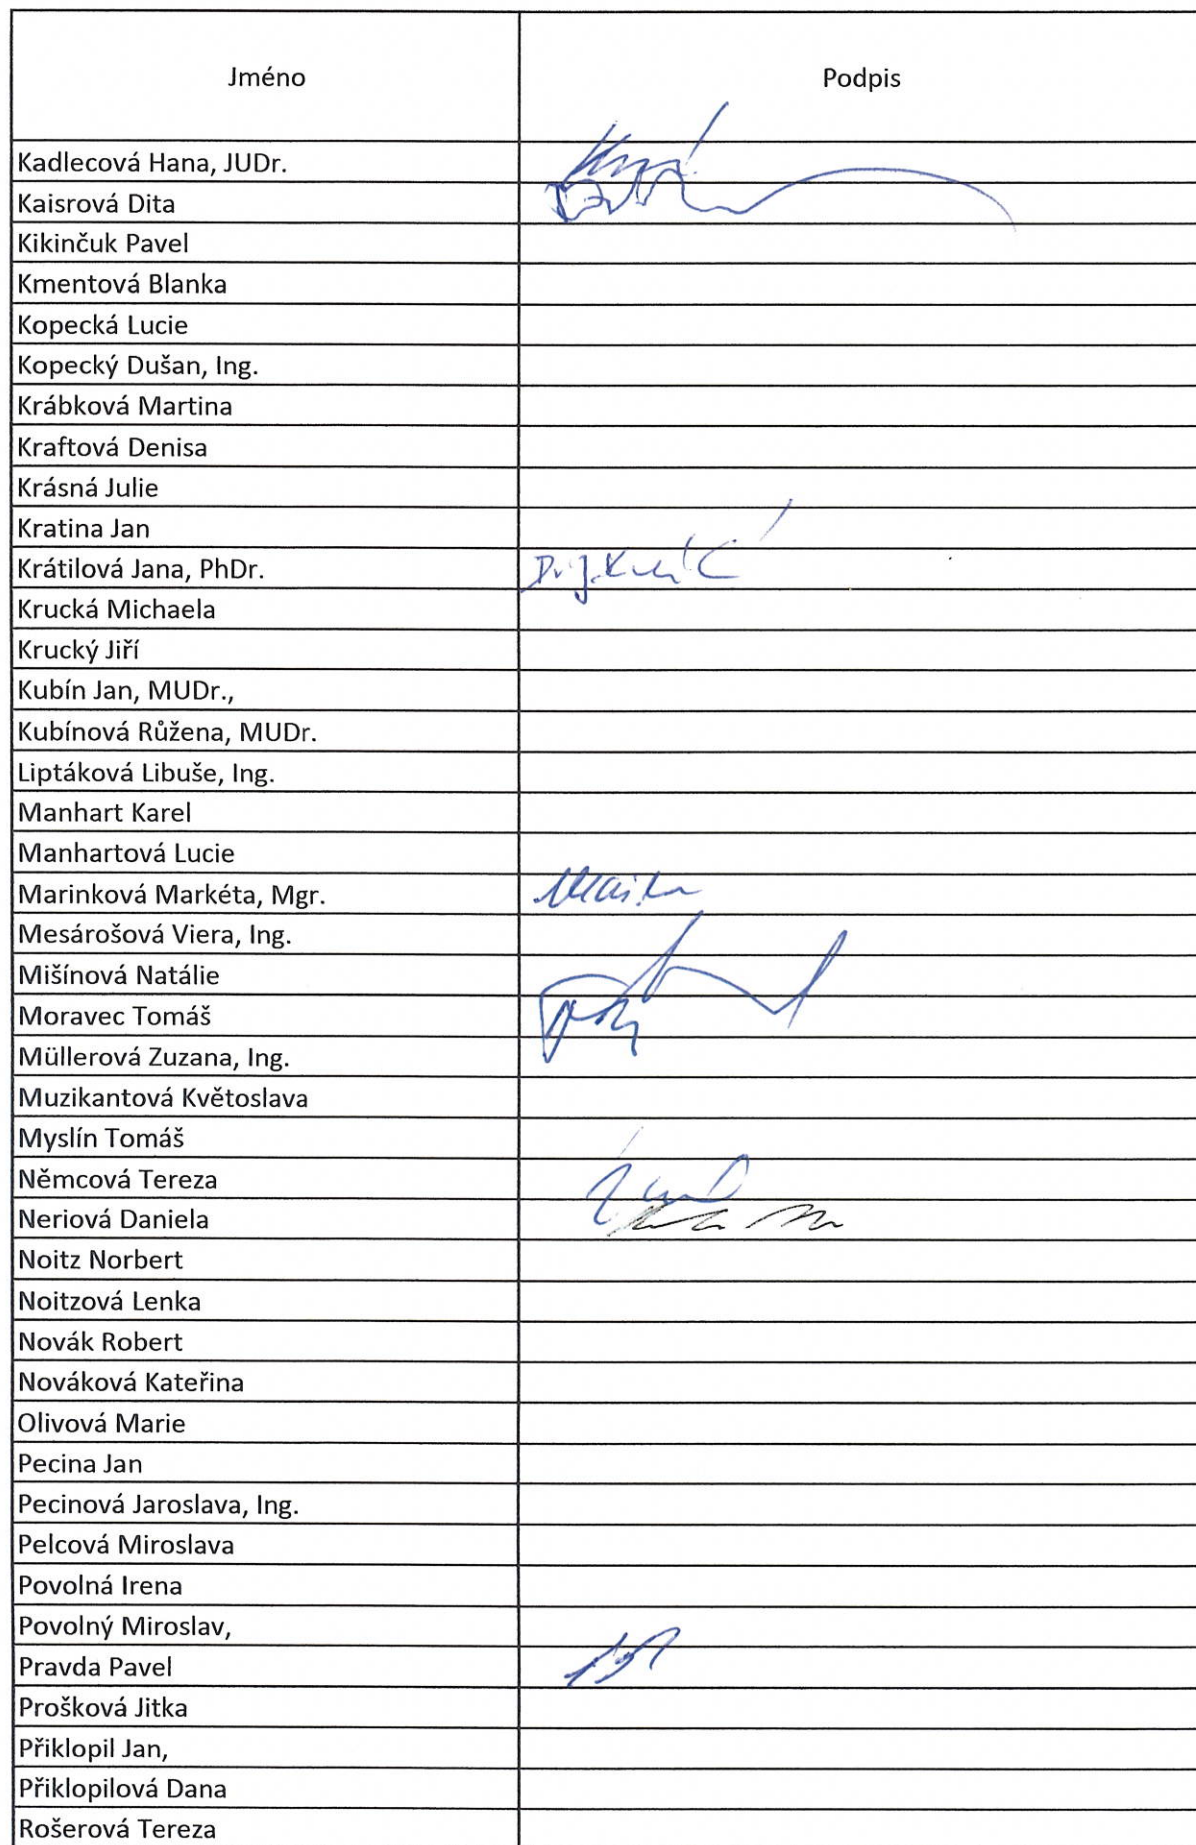 Jméno Podpis
Kadlecová Hana, JUDr.
Kaisrová Dita
Kikinčuk Pavel
Kmentová Blanka
Kopecká Lucie
Kopecký Dušan, Ing.
Krábková Martina
Kraftová Denisa
Krásná Julie
Kratina Jan
Krátilová Jana, PhDr.
Krucká Michaela
Krucký Jiří
Kubín Jan, MUDr.,
Kubínová Růžena, MUDr.
Liptáková Libuše, Ing.
Manhart Karel
Manhartová Lucie
Marinková Markéta, Mgr.
Mesárošová Viera, Ing.
Mišínová Natálie
Moravec Tomáš
Müllerová Zuzana, Ing.
Muzikantová Květoslava
Myslín Tomáš
Němcová Tereza
Neriová Daniela
Noitz Norbert
Noitzová Lenka
Novák Robert
Nováková Kateřina
Olivová Marie
Pecina Jan
Pecinová Jaroslava, Ing.
Pelcová Miroslava
Povolná Irena
Povolný Miroslav,
Pravda Pavel
Prošková Jitka
Přiklopil Jan,
Přiklopilová Dana
Rošerová Tereza